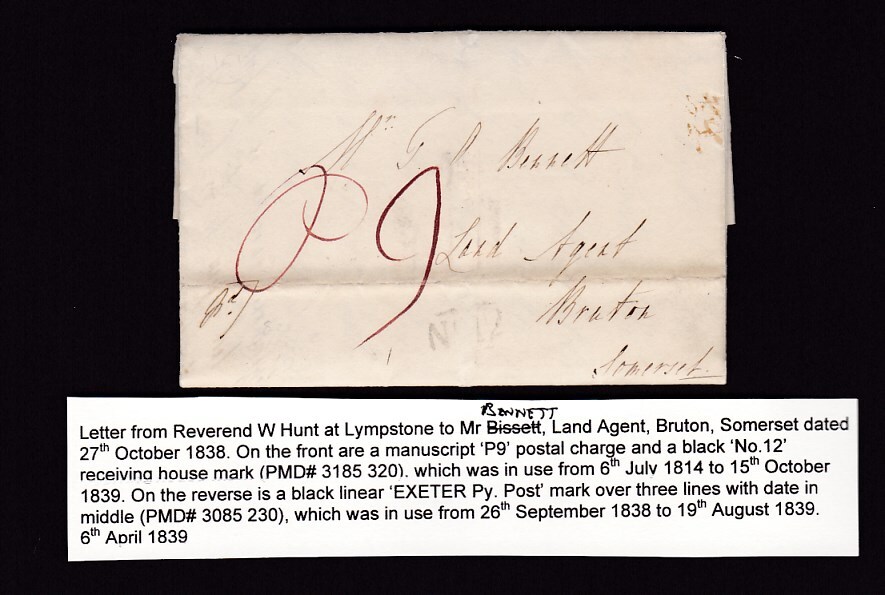 Mr G Bennett
P 9
Land Agent
Pd.
Bruton
No. 12
Somerset.
BENNETT
Letter from Reverend W Hunt at Lympstone to Mr Bissett, Land Agent, Bruton, Somerset dated
27th October 1838. On the front are a manuscript ‘P9’ postal charge and a black ‘No.12’
receiving house mark (PMD# 3185 320), which was in use from 6th July 1814 to 15th October
1839. On the reverse is a black linear ‘EXETER Py. Post’ mark over three lines with date in
middle (PMD# 3085 230), which was in use from 26th September 1838 to 19th August 1839.
6th April 1839